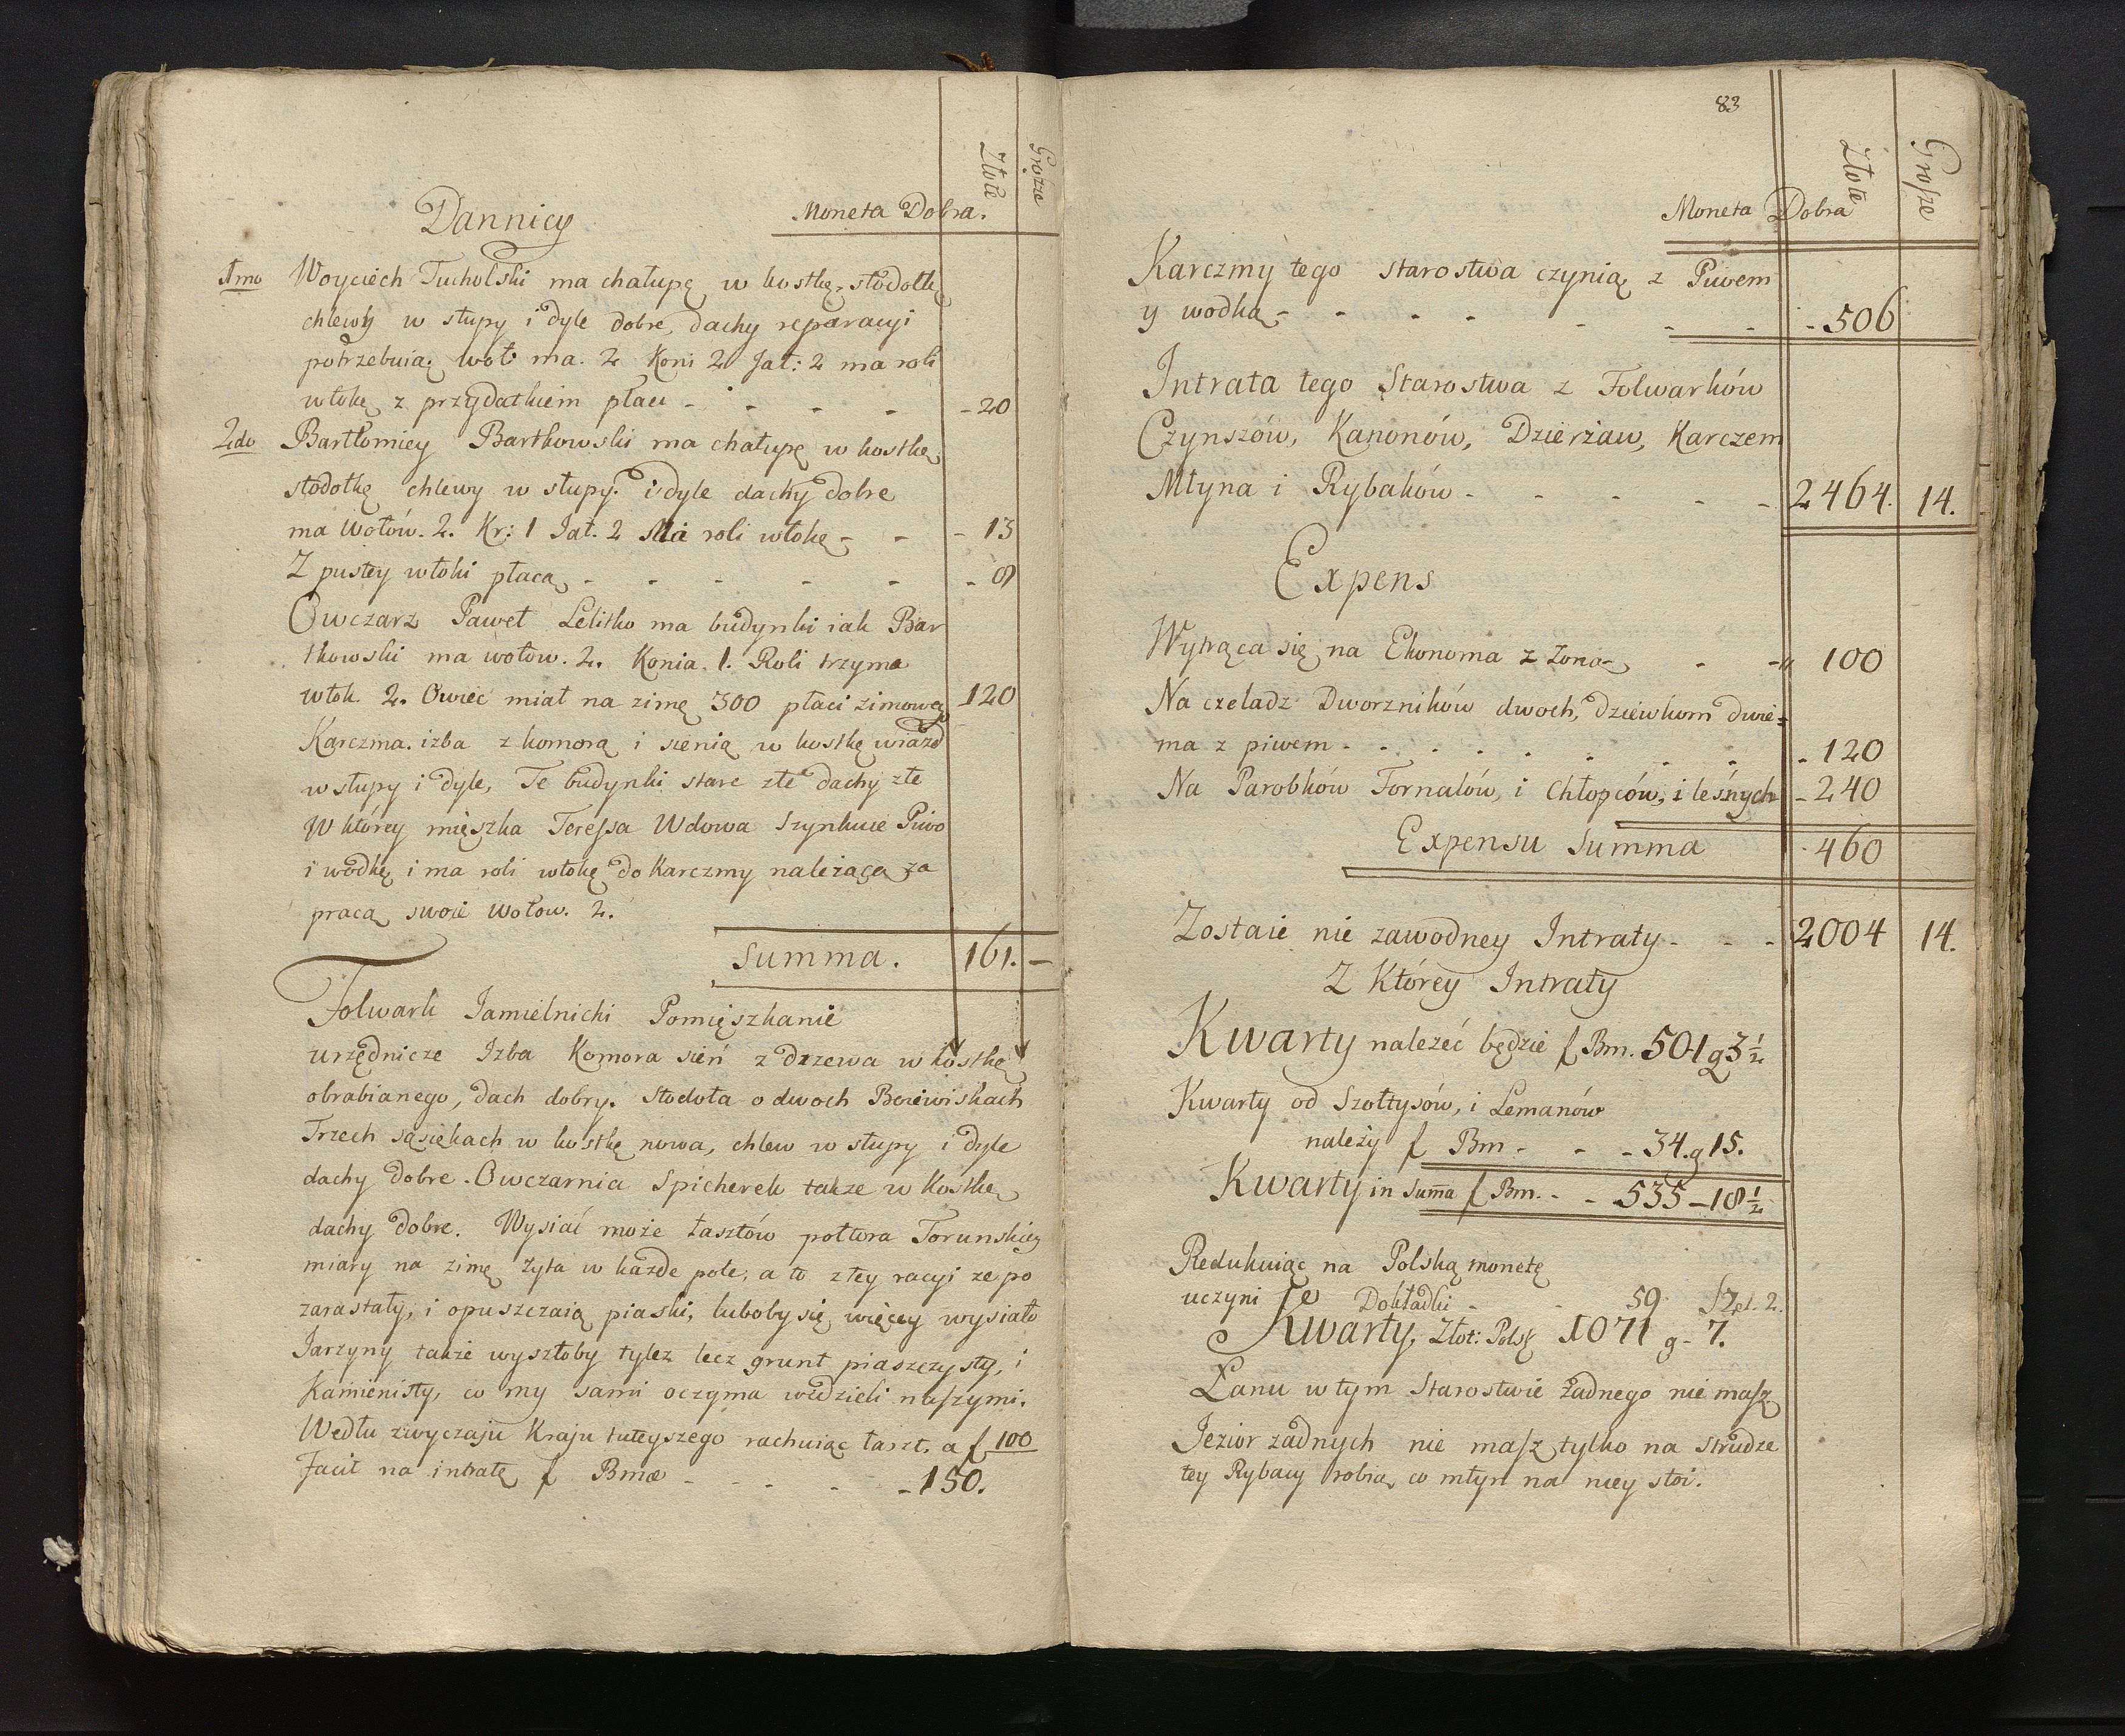 Złote Grosze
Dannicy Moneta Dobra.
1mo Woyciech Tucholski ma chałupę w kostkę, stodołkę
chlewy w słupy i dyle dobre, dachy reparacyi
potrzebuią. woł: ma. 2 Koni 2 Jał: 2 ma roli
włokę z przydatkiem płaci - - - - - 20
2do Bartłomiey Bartkowski ma chałupę w kostkę
stodołkę chlewy w słupy. i dyle dachy dobre
ma wołów. 2. Kr: 1 Jał. 2 Ma roli włokę - - - 13
Z pustey włoki płacą - - - - - - 8
Owczarz Paweł Lelitko ma budynki iak Bar
tkowski ma wołow. 2. Konia. 1. Roli trzyma
włok. 2. Owiec miał na zimę 300 płaci zimową 120
Karczma. izba z komorą i sienią w kostkę wiazd
w słupy i dyle, Te budynki stare złe dachy złe
W którey mięszka Teressa Wdowa Szynkuie Piwo
i wodkę i ma roli włokę do Karczmy należącą za
pracą swoie wołow. 2.
Summa. 161. -
Folwark Jamielnicki Pomięszkanie
urzędnicze Izba Komora sień z drzewa w kostkę
obrabianego, dach dobry. Stodoła o dwoch Boiewiskach
Trzech sąsiekach w kostkę nowa, chlew w słupy i dyle
dachy dobre. Owczarnia Spicherek także w kostkę
dachy dobre. Wysiać może łasztów połtora Torunskiey
miary na zimę żyta w każde pole, a to z tey racyi ze po
zarastały, i opuszczaią piaski, luboby się więcey wysiało
Jarzyny także wyszłoby tylez lecz grunt piaszczysty, i
Kamienisty, co my sami oczyma widzieli naszymi.
Wedłu zwyczaju Kraju tuteyszego rachuiąc łaszt. a f 100
Facit na intratę f Bmæ - - - - - 150.
83
Złote Grosze
Moneta Dobra
Karczmy tego starostwa czynią z Piwem
y wodką - - - - - - - - 506
Intrata tego Starostwa z Folwarków
Czynszów, Kanonów, Dzierżaw, Karczem
Młyna i Rybaków - - - - - 2464. 14.
Expens
Wytrąca się na Ekonoma z żoną - - - 100
Na czeladz Dworzników dwoch, dziewkom dwie=
ma z piwem - - - - - - - - 120
Na Parobków Fornalów, i Chłopców, i leśnych - 240
Expensu Summa 460
Zostaie nie zawodney Intraty - - - 2004 14.
Z Którey Intraty
Kwarty należeć będzie f Bm. 501 g 3 1/2
Kwarty od Szołtysów, i Lemanów
należy f Bm - - - 34. g 15.
Kwarty in Summa f Bm. - - 535 - 18 1/2
Redukuiąc na Polską monetę
uczyni
Dokładki - - 59 Szel. 2.
Kwarty, Złot: Pols 1071 g - 7.
Łanu w tym Starostwie żadnego nie masz
Jezior żadnych nie masz tylko na strudze
tey Rybacy robią, co młyn na niey stoi.